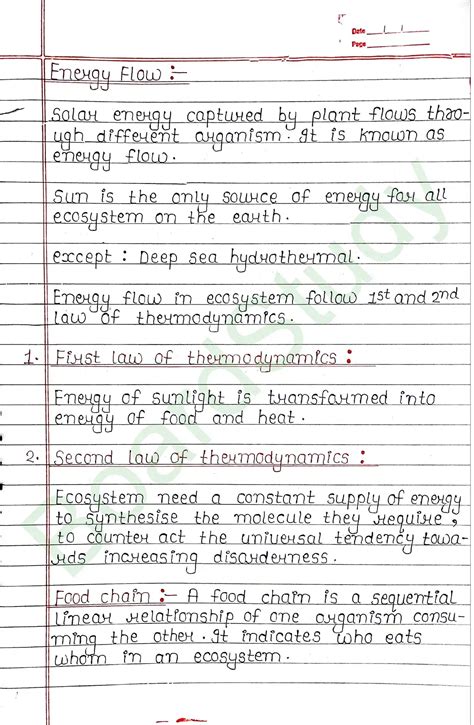 Date
Page
Energy Flow :-
Solar energy captured by plant flows thro-
ugh different organism. It is known as
energy flow.
Sun is the only source of energy for all
ecosystem on the earth.
except : Deep sea hydrothermal.
Energy flow in ecosystem follow 1st and 2nd
law of thermodynamics.
1. First law of thermodynamics :
Energy of sunlight is transformed into
energy of food and heat.
2. Second law of thermodynamics :
Ecosystem need a constant supply of energy
to synthesise the molecule they require,
to counter act the universal tendency towa-
rds increasing disorderness.
Food chain :- A food chain is a sequential
linear relationship of one organism consu-
ming the other. It indicates who eats
whom in an ecosystem.
BoardStudy